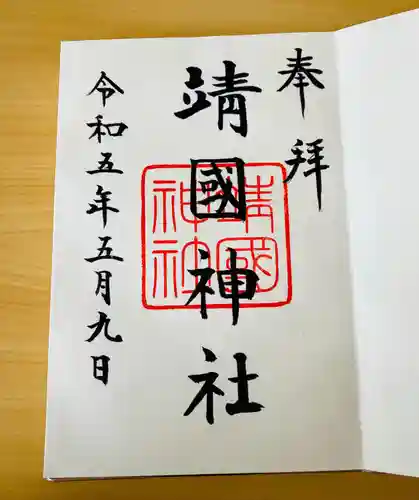 奉拝
靖國神社
令和五年五月九日
靖國
神社